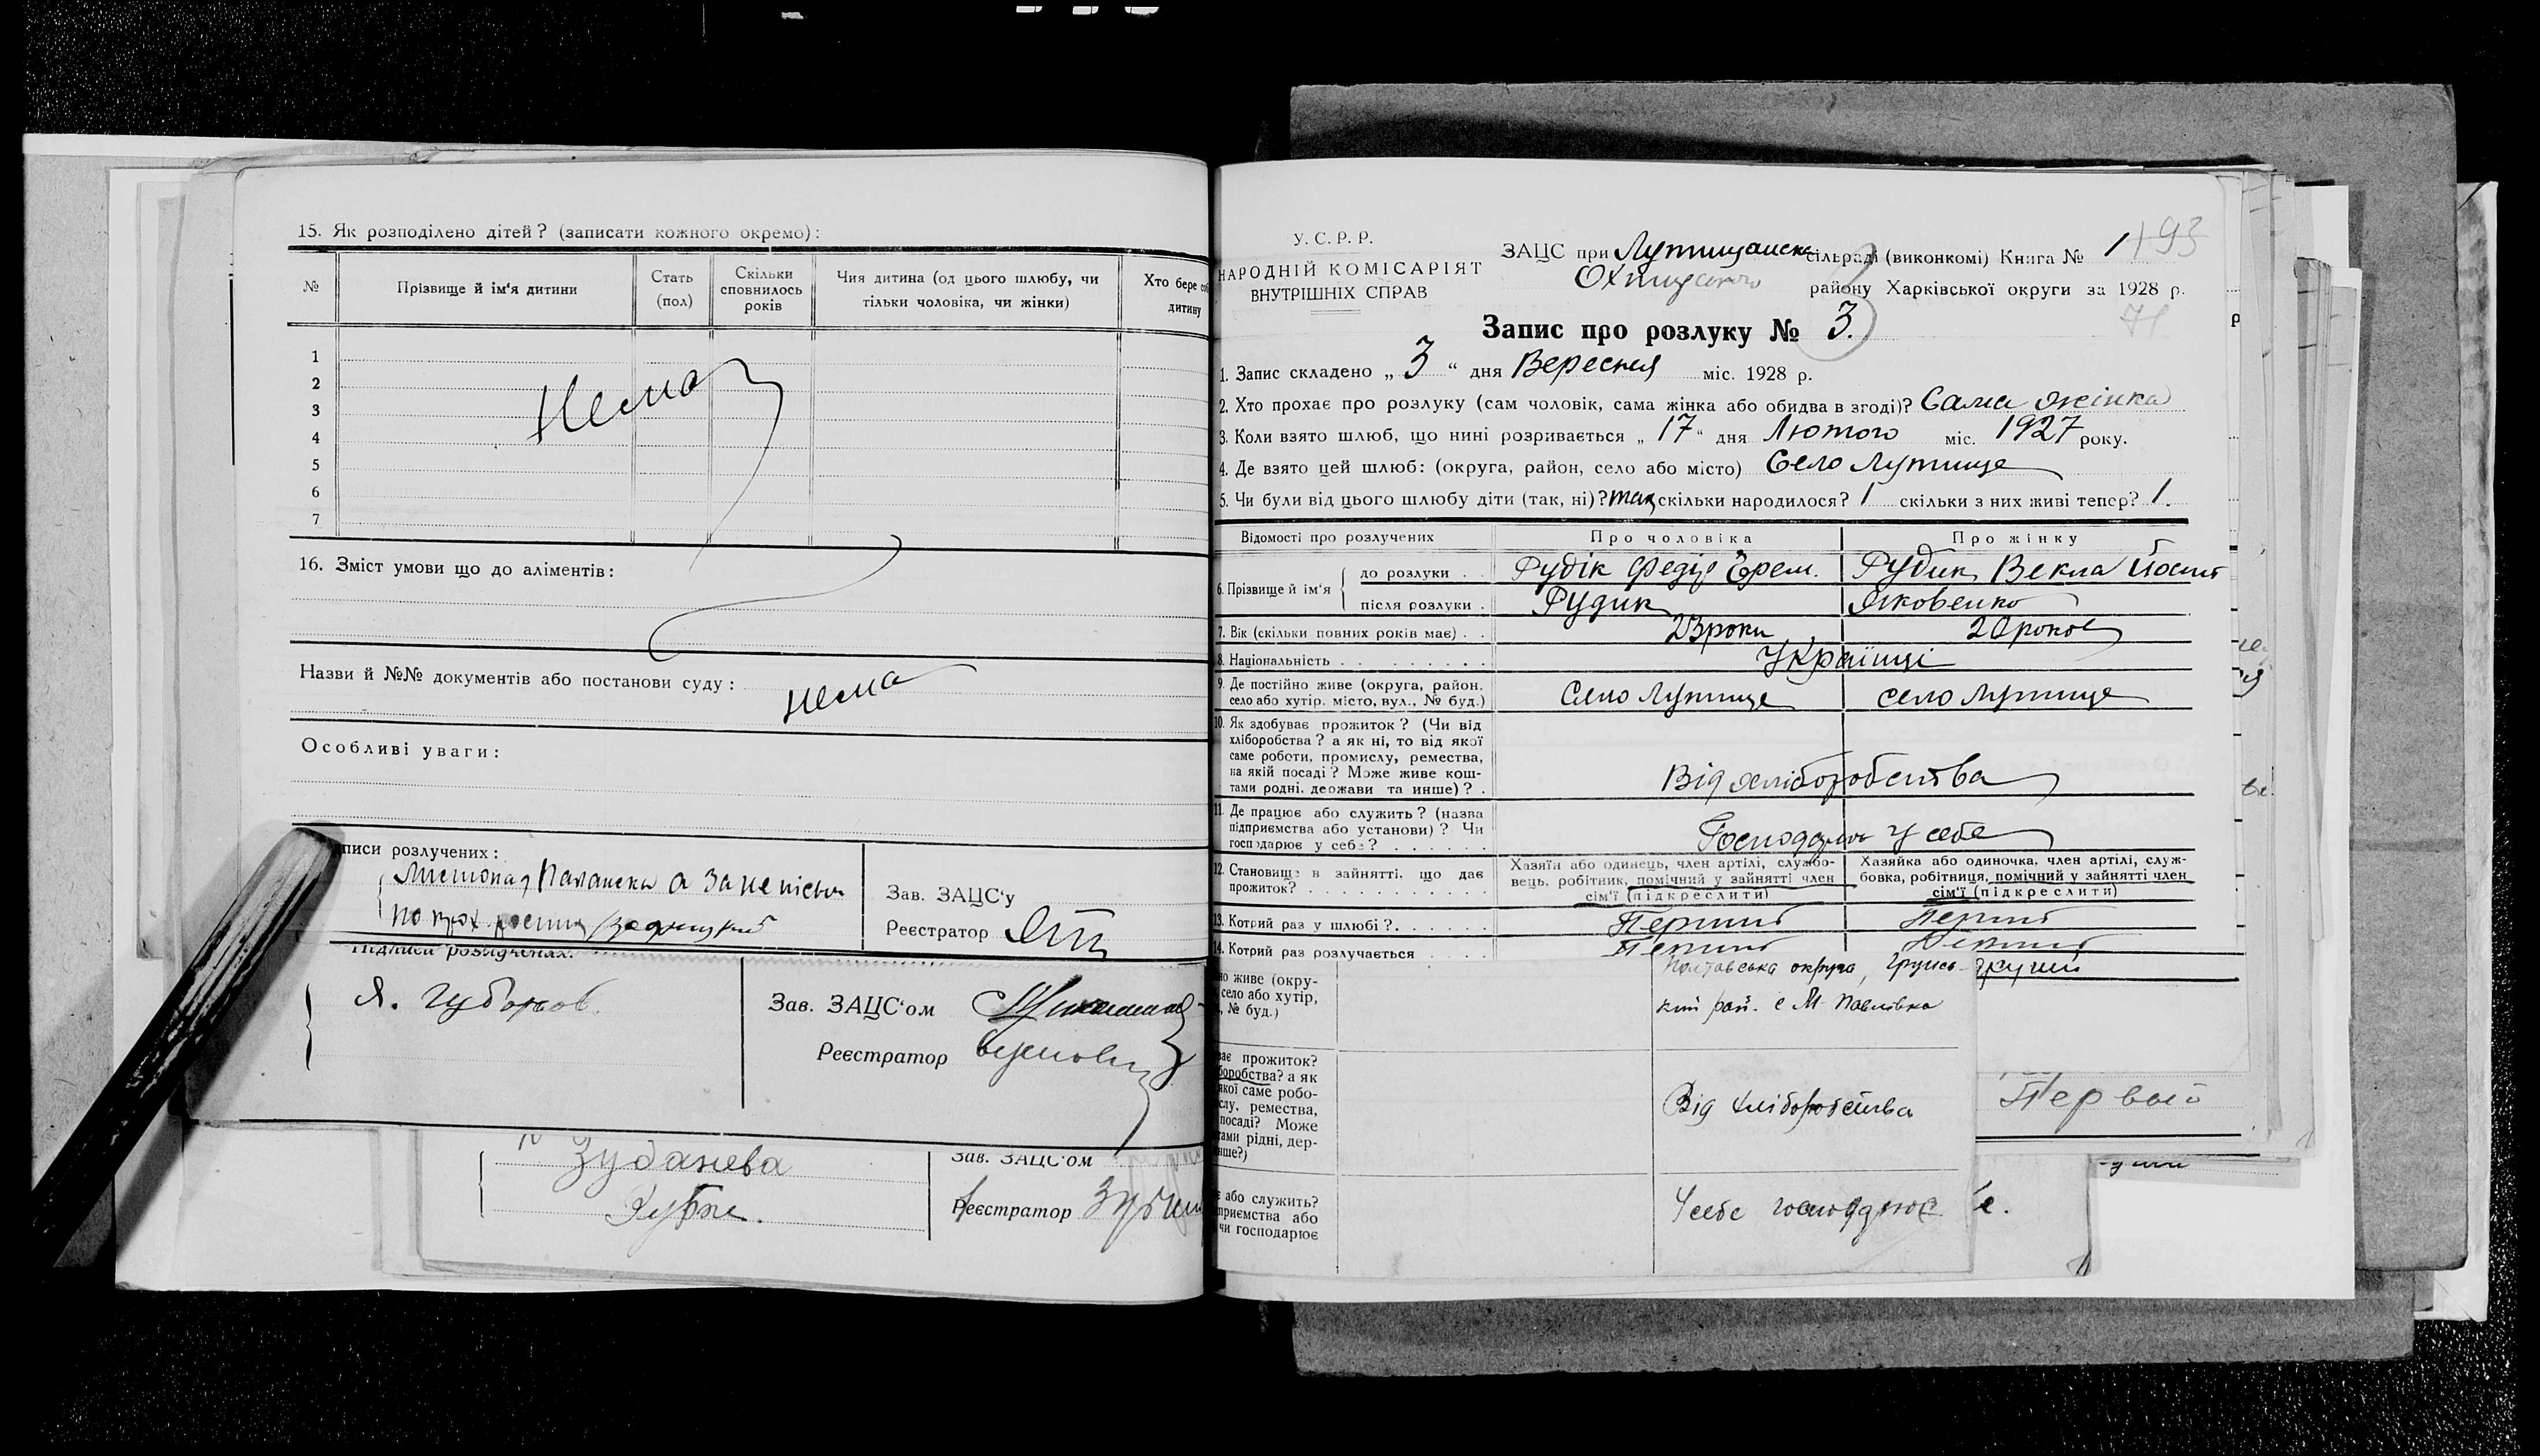 15. Як розподілено дітей? (записати кожного окремо):
№ Прізвище й ім'я дитини Стать (пол) Скільки сповнилось років Чия дитина (од цього шлюбу, чи тільки чоловіка, чи жінки) Хто бере соб дитину
1
2
3
4
5
6
7
Нема
16. Зміст умови що до аліментів:
Назви й №№ документів або постанови суду: нема
Особливі уваги:
писи розлучених:
а за неписьм
Зав. ЗАЦС'у
Реєстратор
Підписи розлучених:
Я. Губарєв.
Зав. ЗАЦС'ом
Реєстратор
Зубанева
Зав. ЗАЦС'ом
Реєстратор
У. С. Р. Р.
НАРОДНІЙ КОМІСАРІЯТ
ВНУТРІШНІХ СПРАВ
193
ЗАЦС при Лутищанск сільраді (виконкомі) Книга № 1
Охтирського району Харківської округи за 1928 р.
71
Запис про розлуку № 3.
1. Запис складено „ 3 “ дня Вересня міс. 1928 р.
2. Хто прохає про розлуку (сам чоловік, сама жінка або обидва в згоді)? Сама жінка
3. Коли взято шлюб, що нині розривається „ 17 “ дня Лютого міс. 1927 року.
4. Де взято цей шлюб: (округа, район, село або місто) Село Лутище
5. Чи були від цього шлюбу діти (так, ні)? так скільки народилося? 1 скільки з них живі тепер? 1.
Відомості про розлучених Про чоловіка Про жінку
6. Прізвище й ім'я
до розлуки . . Рудік Федір Єрем. Рудик Векла Йосип
після розлуки . Рудик Яковенко
7. Вік (скільки повних років має) . . 23 роки 20 років
8. Національність . . . . . . . . Українці
9. Де постійно живе (округа, район, село або хутір, місто, вул., № буд.) Село Лутище село Лутище
10. Як здобуває прожиток? (Чи від
хліборобства? а як ні, то від якої
саме роботи, промислу, ремества,
на якій посаді? Може живе кош-
тами родні, держави та инше)? . Від хліборобства
11. Де працює або служить? (назва
підприємства або установи)? Чи
господарює у себе? . . . . . . Господарює у себе
12. Становище в зайнятті, що дає
прожиток? . . . . . . . . . .
Хазяїн або одинець, член артілі, службо-
вець, робітник, помічний у зайнятті член
сім'ї (підкреслити)
Хазяйка або одиночка, член артілі, служ-
бовка, робітниця, помічний у зайнятті член
сім'ї (підкреслити)
13. Котрий раз у шлюбі? . . . . . . Перший Перший
14. Котрий раз розлучається . . . . Перший Перший
но живе (окру-
село або хутір,
., № буд.)
Полтавська округа, Грунсь-
кий рай. с М Павлівка
ває прожиток?
боробства? а як
якої саме робо-
слу, ремества,
посаді? Може
тами рідні, дер-
нше?)
Від хліборобства
Первый
є або служить?
приємства або
чи господарює
У себе господарює
е.